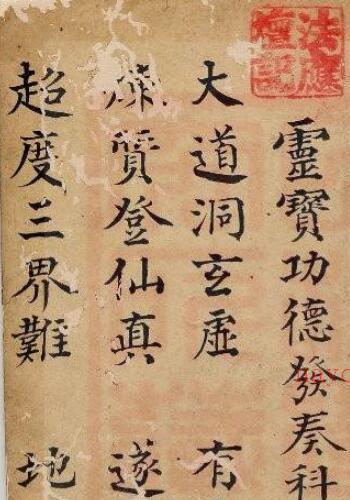 靈寶功德發奏科
大道洞玄虛 有
煉質登仙真 遂
超度三界難 地
法應
壇記